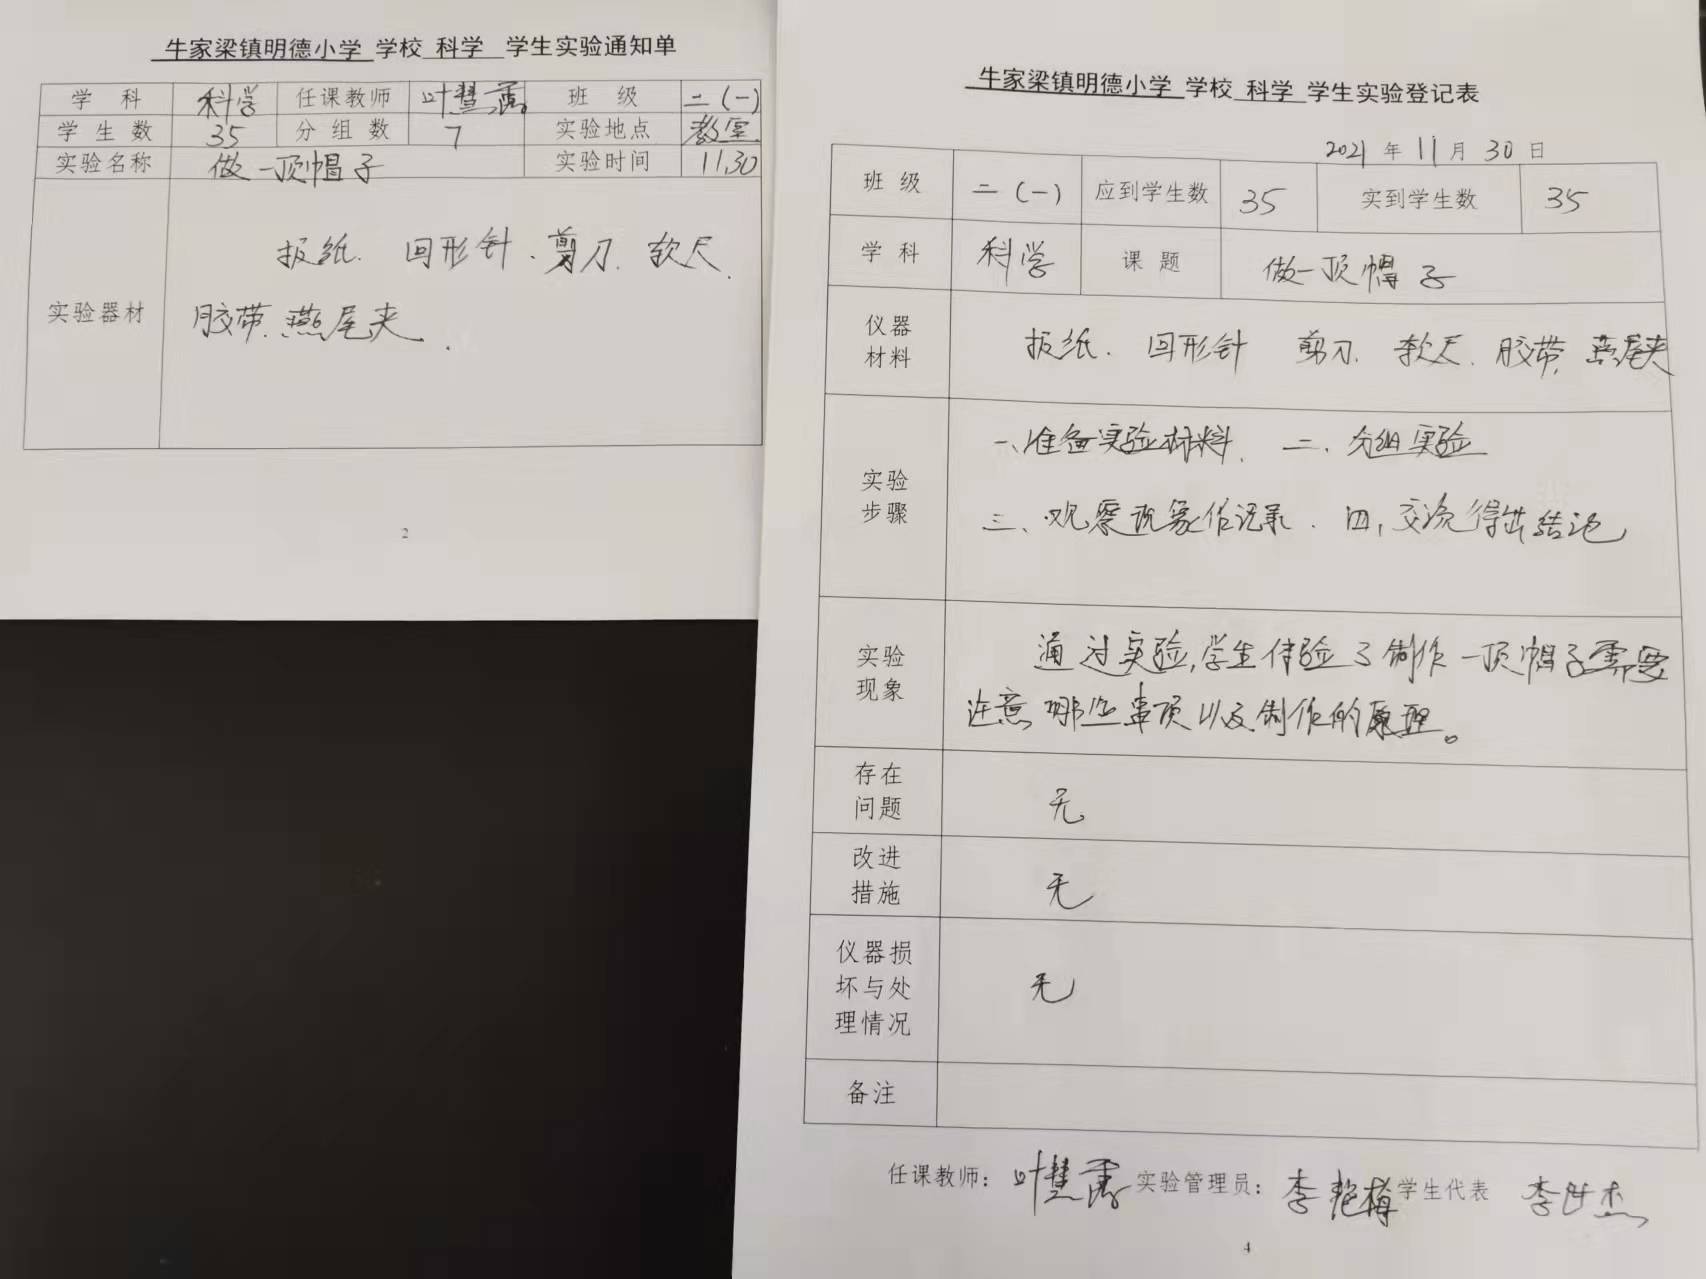 牛家梁镇明德小学 学校 科学 学生实验通知单
学 科 科学 任课教师 叶慧 班 级 二(一)
学生数 35 分组数 7 实验地点 教室
实验名称 做一顶帽子 实验时间 11.30
实验器材
扳纸. 回形针. 剪刀. 软尺.
胶带. 燕尾夹.
2
牛家梁镇明德小学 学校 科学 学生实验登记表
2021 年 11 月 30 日
班 级 二(一) 应到学生数 35 实到学生数 35
学 科 科学 课 题 做一顶帽子
仪器
材料
扳纸. 回形针 剪刀. 软尺. 胶带. 燕尾夹
实验
步骤
一、准备实验材料. 二、分组实验
三、观察现象作记录. 四、交流得出结论
实验
现象
通过实验,学生体验了制作一顶帽子需要
注意哪些事项以及制作的原理。
存在
问题
无
改进
措施
无
仪器损
坏与处
理情况
无
备注
任课教师: 叶慧 实验管理员: 李艳梅 学生代表 李
4